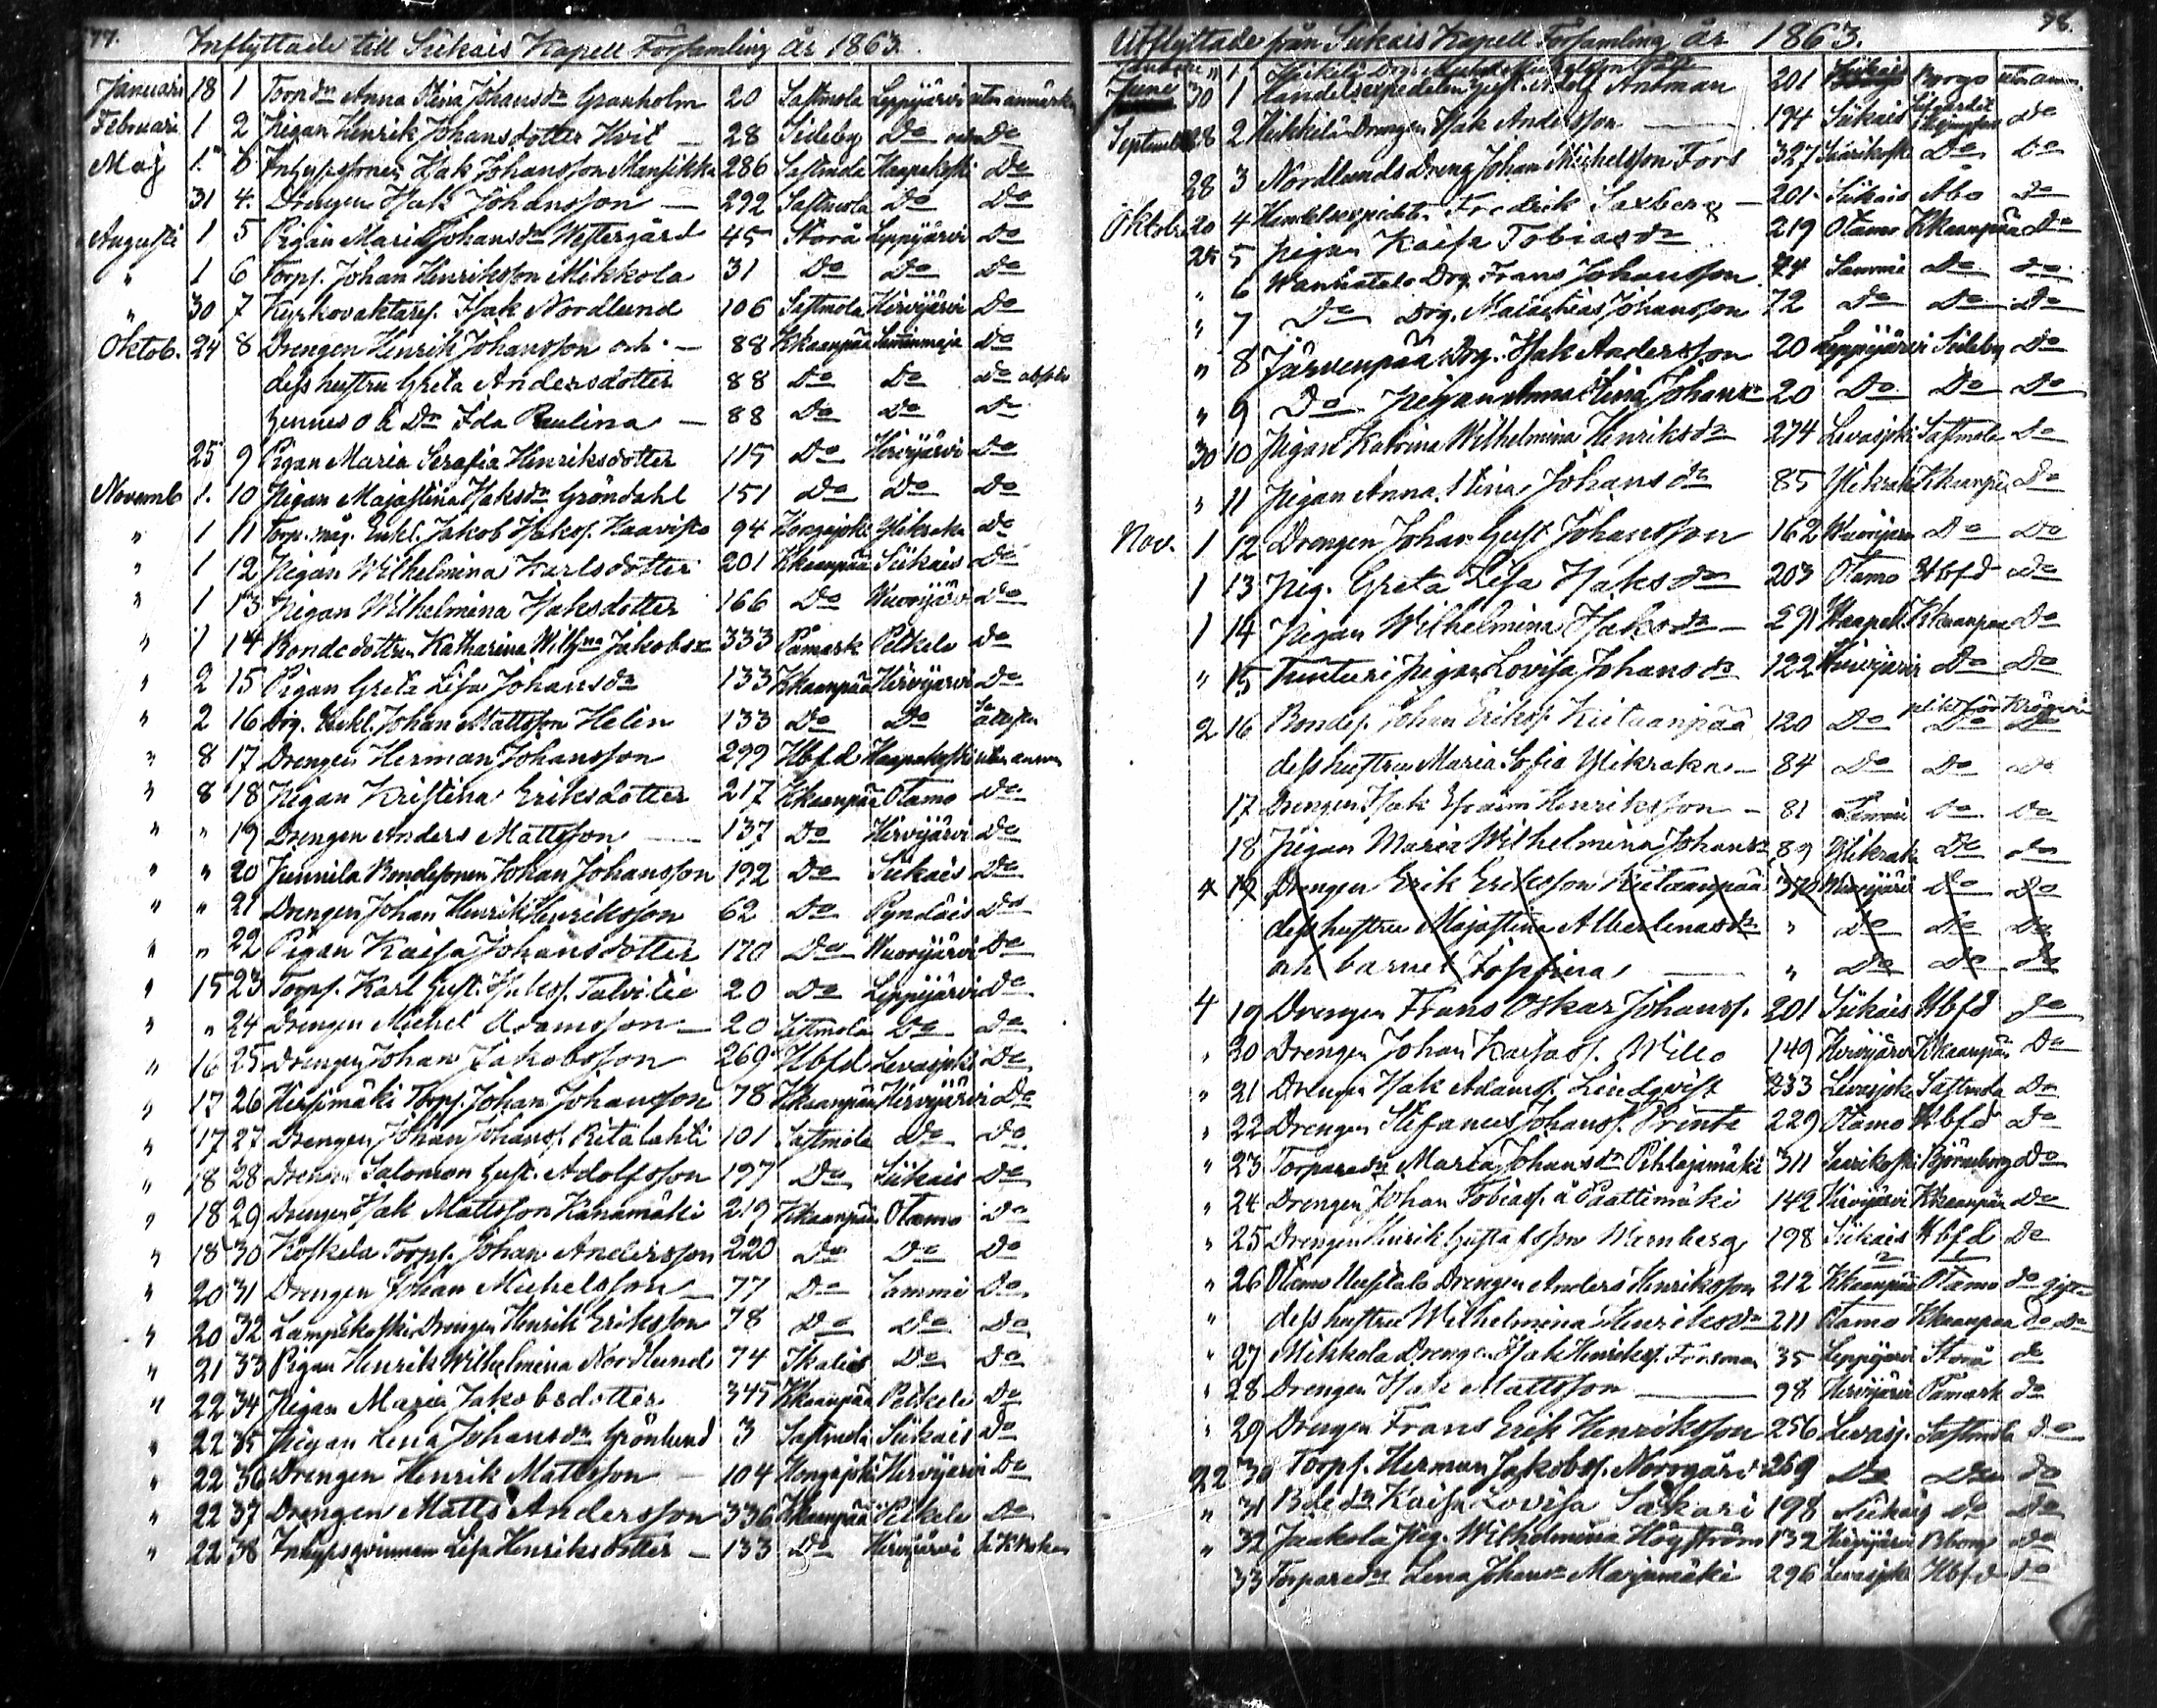 77.
Inflyttade till Siikais Kapell Församling år 1863.
Januari 18 1 Torp.dr Anna Stina Johansdr Granholm 20 Sastmola Leppijärvi utan anmärkn
Februari 1 2 Pigan Henrik Johansdotter Hvit — 28 Sideby Do Do
Maj 1 3 Inhyssonen Isak Johansson Mansikka 286 Sastmola Haapakoski Do
31 4. Drengen Isak Johansson — 292 Sastmola Do Do
Augusti 1 5 Pigan Maria Johansdr Westergård 45 Storå Leppijärvi Do
" 1 6 Torps. Johan Henriksson Mikkola 31 Do Do Do
" 30 7 Kyrkovaktares. Isak Nordlund 106 Sastmola Hirvijärvi Do
Oktob. 24 8 Drengen Henrik Johansson och — 88 Kkaanpää Do
dess hustru Greta Andersdotter 88 Do Do Do
hennes o ä Dr Ida Paulina — 88 Do Do Do
25 9 Pigan Maria Serafia Henriksdotter 115 Do Hirvijärvi Do
Novemb 1. 10 Pigan Majastina Isaksdr Gröndahl 151 Do Do Do
" 1 11 Torp. måg. Enkl. Jakob Isakss. Haavisto 94 Hongojoki Ylikraka Do
" 1 12 Pigan Wilhelmina Karlsdotter 201 Kkaanpää Siikais Do
" 1 13 Pigan Wilhelmina Isaksdotter 166 Do Wuorijärvi Do
" 1 14 Bondedottren Katharina Wilhna Jakobsdr 333 Påmark Petkele Do
" 2 15 Pigan Greta Lisa Johansdr 133 Kkaanpää Hirvijärvi Do
" 2 16 Drg. Enkl. Johan Mattsson Helin 133 Do Do
" 8 17 Drengen Herman Johansson 299 Hbfd Haapakoski utan anm
" 8 18 Pigan Kristina Eriksdotter 217 Kkaanpää Otamo Do
" " 19 Drengen Anders Mattsson — 137 Do Hirvijärvi Do
" " 20 Junnila Bondesonen Johan Johansson 192 Do Siikais Do
" " 21 Drengen Johan Henrik Henriksson 62 Do Pyndäis Do
" " 22 Pigan Kaisa Johansdotter 170 Do Wuorijärvi Do
" 15 23 Torps. Karl Gust. Isakss. Talvitie 20 Do Leppijärvi Do
" " 24 Drengen Michel Adamsson — 20 Sastmola Do Do
" 16 25 Drengen Johan Jakobsson 269 Hbfd Levasjoki Do
" 17 26 Torps. Johan Johansson 78 Kkaanpää Hirvijärvi Do
" 17 27 Drengen Johan Johanss. Ritalahti 101 Sastmola Do Do
" 18 28 Drengen Salomon Gust. Adolfsson 197 Do Siikais Do
" 18 29 Drengen Isak Mattsson Kanamäki 219 Kkaanpää Otamo Do
" 18 30 Koskela Torps. Johan Andersson 220 Do Do Do
" 20 31 Drengen Johan Michelsson — 77 Do Sammi Do
" 20 32 Lampikoski Drengen Henrik Eriksson 78 Do Do Do
" 21 33 Pigan Henrik Wilhelmina Nordlund 74 Ikalis Do Do
" 22 34 Pigan Maria Jakobsdotter 345 Kkaanpää Petkele Do
" 22 35 Pigan Lena Johansdr Grönlund 3 Sastmola Siikais Do
" 22 36 Drengen Henrik Mattsson — 104 Hongojoki Hirvijärvi Do
" 22 37 Drengen Matts Andersson 336 Kkaanpää Petkele Do
" 22 38 Inhysqvinnan Lisa Henriksdotter — 133 Do Hirvijärvi
78.
Utflyttade från Siikais Kapell Församling år 1863.
" 1 Heikilä Drg.
Juni 30 1 Handelsexpediten Gust. Adolf Antman 201 Siikais Borgo utan anm.
September 28 2 Heikkilä Drengen Isak Andersson — 194 Siikais Do
28 3 Nordlunds Dreng Johan Michelsson Fors 327 Saarikoski Do Do
Oktob. 20 4 Fredrik Saxberg — 201 Siikais Åbo Do
25 5 Pigan Kaisa Tobiasdr 219 Otamo Kkaanpää Do
" 6 Wanhatalo Drg. Frans Johansson 74 Sammi Do Do
" 7 Do Drg. Malachias Johansson 72 Do Do Do
" 8 Järvenpää Drg. Isak Andersson 20 Leppijärvi Sideby Do
" 9 Do Pigan Anna Stina Johansdr 20 Do Do Do
30 10 Pigan Katrina Wilhelmina Henriksdr 274 Levasjoki Sastmola Do
" 11 Pigan Anna Stina Johansdr 85 Ylikraka Kkaanpää Do
Nov. 1 12 Drengen Johan Gust Johansson 162 Wuorijärvi Do Do
1 13 Pig. Greta Lisa Isaksdr 203 Otamo Hbfd Do
1 14 Pigan Wilhelmina Isaksdr — 291 Haapak. Kkaanpää Do
" 15 Tunturi Pigan Lovisa Johansdr 122 Hirvijärvi Do Do
2 16 Bondes. Johan Erikss. Kietaanpää 120 Do Do Do
dess hustru Maria Sofia Ylikraka — 84 Do Do Do
17 Drengen Isak Efraim Henriksson — 81 Sammi Do Do
18 Pigan Maria Wilhelmina Johansdr 89 Ylikraka Do Do
4 19 Drengen Erik Eriksson Kietaanpää 370 Wuorijärvi Do Do
dess hustru Majastina Albertinasdr " Do Do Do
och barnet Josefina — " Do Do Do
4 19 Drengen Frans Oskar Johanss. 201 Siikais Hbfd Do
" 20 Drengen Johan Kaisass. Wille 149 Hirvijärvi Kkaanpää Do
" 21 Drengen Isak Adamss. Lindqvist 233 Levasjoki Sastmola Do
" 22 Drengen Stefanus Johanss. Printe 229 Otamo Hbfd Do
" 23 Torparedr Maria Johansdr Pihlajamäki 311 Saarikoski Björneborg Do
" 24 Drengen Johan Tobiass. å Paattimäki 142 Hirvijärvi Kkaanpää Do
" 25 Drengen Henrik Gustafsson Wernberg 198 Siikais Hbfd Do
" 26 Otamo Uusitalo Drengen Anders Henriksson 212 Kkaanpää Otamo Do gifta
" dess hustru Wilhelmina Henriksdr 211 Otamo Kkaanpää Do Do
" 27 Mikkola Drengen Isak Henrikss. Forsman 35 Leppijärvi Storå do
" 28 Drengen Isak Mattsson — 98 Hirvijärvi Påmark do
" 29 Drengen Frans Erik Henriksson 256 Levasj. Sastmola Do
22 30 Torps. Herman Jakobss. Norrgård 269 Do Do Do
" 31 Bdedr Kaisa Lovisa Sakari 198 Siikais do Do
" 32 Jaakola Pig. Wilhelmina Högström 132 Hirvijärvi Bborg Do
33 Torparedr Lena Johansdr Marjamäki 296 Levasjoki Hbfd do